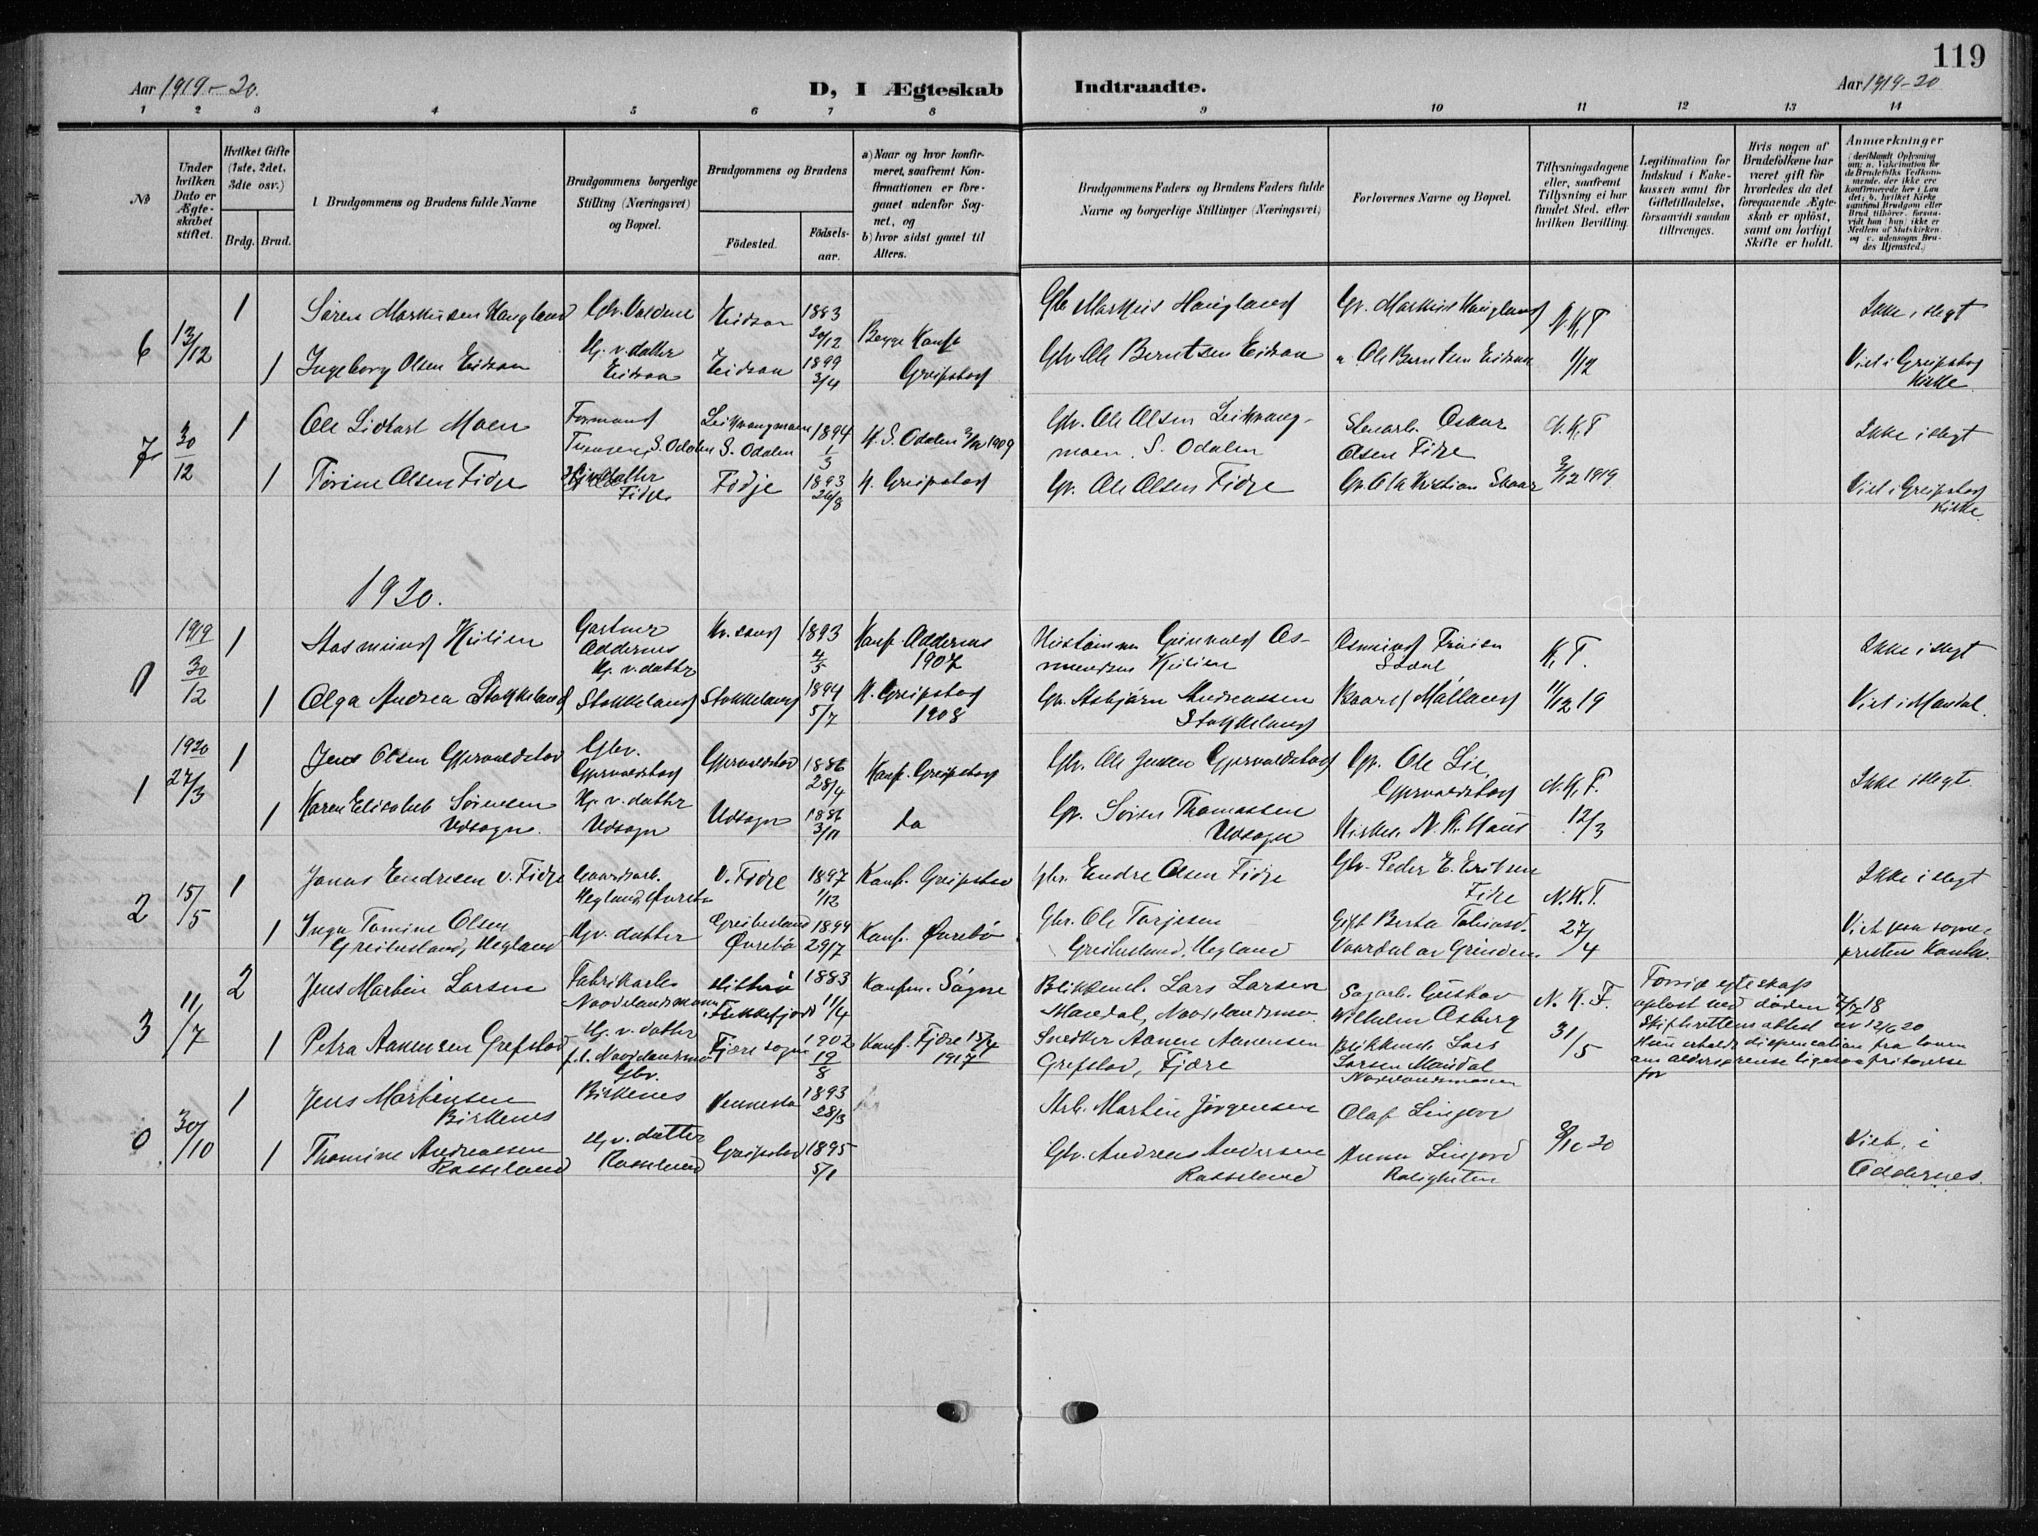 119
Aar 1919-20.
D, I Ægteskab Indtraadte.
Aar 1919-20
1 2 3 4 5 6 7 8 9 10 11 12 13 14
No
Under hvilken Dato er Ægteskabet stiftet.
Hvilket Gifte (1ste, 2det, 3die osv.)
Brdg. Brud.
Brudgommens og Brudens fulde Navne
Brudgommens borgerlige Stilling (Næringsvei) og Bopæl.
Brudgommens og Brudens
Födested.
Födsels-aar.
a) Naar og hvor konfirmeret, saafremt Konfirmationen er foregaaet udenfor Sognet, og
b) hvor sidst gaaet til Alters.
Brudgommens Faders og Brudens Faders fulde Navne og borgerlige Stillinger (Næringsvei)
Forlovernes Navne og Bopæl.
Tillysningsdagene eller, saafremt Tillysning ei har fundet Sted, efter hvilken Bevilling.
Legitimation for Indskud i Enkekassen samt for Giftetilladelse, forsaavidt saadan tiltrænges.
Hvis nogen af Brudefolkene har været gift för hvorledes da det foregaaende Ægteskab er oplöst, samt om lovligt Skifte er holdt.
Anmærkninger
6 13/12 1 Søren Markussen Haugland Gbr. Valdene Eidsaa 1893 20/12 Begge Konf. Greipstad
Gbr Markus Haugland Gbr. Markus Haugland N.K,T 1/12 Ikke i slegt
1 Ingeborg Olsen Eidsaa Hj. v. datter Eidsaa Eidsaa 1899 3/4
Gbr. Ole Berntsen Eidsaa Ole Berntsen Eidsaa Viet i Greipstad Kirke
7 30/12 1 Ole Lidkart Moen Formand S. Odalen Leikvangmoen S. Odalen 1894 1/3 K. S. Odalen 1909
Gbr. Ole Olsen Leikvangmoen. S. Odalen Oskar Olsen Fidje N.K,T 1919 Ikke i slegt
1 Torine Olsen Fidje Hj. v. datter Fidje Fidje 1893 26/8 K. Greipstad
Gbr. Ole Olsen Fidje Gbr. Ola Kristian Skaar Viet i Greipstad Kirke
1920.
0 1919 30/12 1 Aasmund Kjilien Gartner Oddernes Kr. sand 1893 4/5 Konf. Oddernes 1907
Gunvald Osmundsen Kjilien K, T. 11/12 19 Ikke i slegt
1 Olga Andrea Stokkeland Hj. v. datter Stokkeland Stokkeland 1894 5/7 K. Greipstad 1908
Gbr. Asbjørn Andreassen Stokkeland Kaare Mølland Viet i Mandal.
1 1920 27/3 1 Jens Olsen Gjervoldstad Gbr. Gjervoldstad Gjervoldstad 1886 28/4 Konf. Greipstad
Gbr. Ole Jensen Gjervoldstad Gbr. Ole Lie, Gjervoldstad N.K,T. 12/3 Ikke i slegt.
1 Karen Elisabeth Sørensen Udsogn. Hj. v. datter Udsogn Udsogn 1886 3/11 do
Gbr. Søren Thomassen Udsogn Kirkes. N. K. Haus
2 15/5 1 Jonas Endresen v. Fidje Gaardsarb. Hegland, Øvrebø V. Fidje 1897 1/12 Konf. Greipstad
Gbr. Endre Olsen Fidje Gbr. Peder E. Eriksen Fidje N.K.T. 27/4 Ikke i slegt
1 Inga Tomine Olsen Greibesland, Hegland Hj. v. datter Greibesland Øvrebø 1894 29/7 Konf. Øvrebø
Gbr. Ole Torjesen Greibesland, Hegland Gift Berta Tobiasd. Vaardal av Grinden Viet paa sogneprestens Kontor.
3 11/7 2 Jens Martin Larsen Fabrikarb. Noodelandsmoen Hitterø Flekkefjord 1883 11/4 Konfm. Søgne
Blikkensl. Lars Larsen Mandal, Noodelandsmo Sagarb. Gustav Wilhelm Osberg N. K. T. 31/5
Forrige egteskap opløst ved døden 7/7 18 Skifterettens attest av 12/6 20 Hun erholdt dispensation fra loven om aldersgrense ligesaa fritagelse for
1 Petra Aanensen Grefstad Hj. v. datter f.t. Noodelandsmo Fjære sogn 1902 19/8 Konf. Fjære 1917
Snedker Aanen Aanensen Grefstad, Fjære Blikkensl. Lars Larsen Mandal Noodelandsmoen
0 30/10 1 Jens Martinsen Birkenes Gbr. Birkenes Vennesla 1893 28/3
Arb. Martin Jørgensen Olaf Linjord
1 Thomine Andreassen Rosseland Hj. v. datter Rosseland Greipstad 1895 5/1
Gbr. Andreas Andersen Rosseland Anna Linjord Roligheten Viet i Oddernes